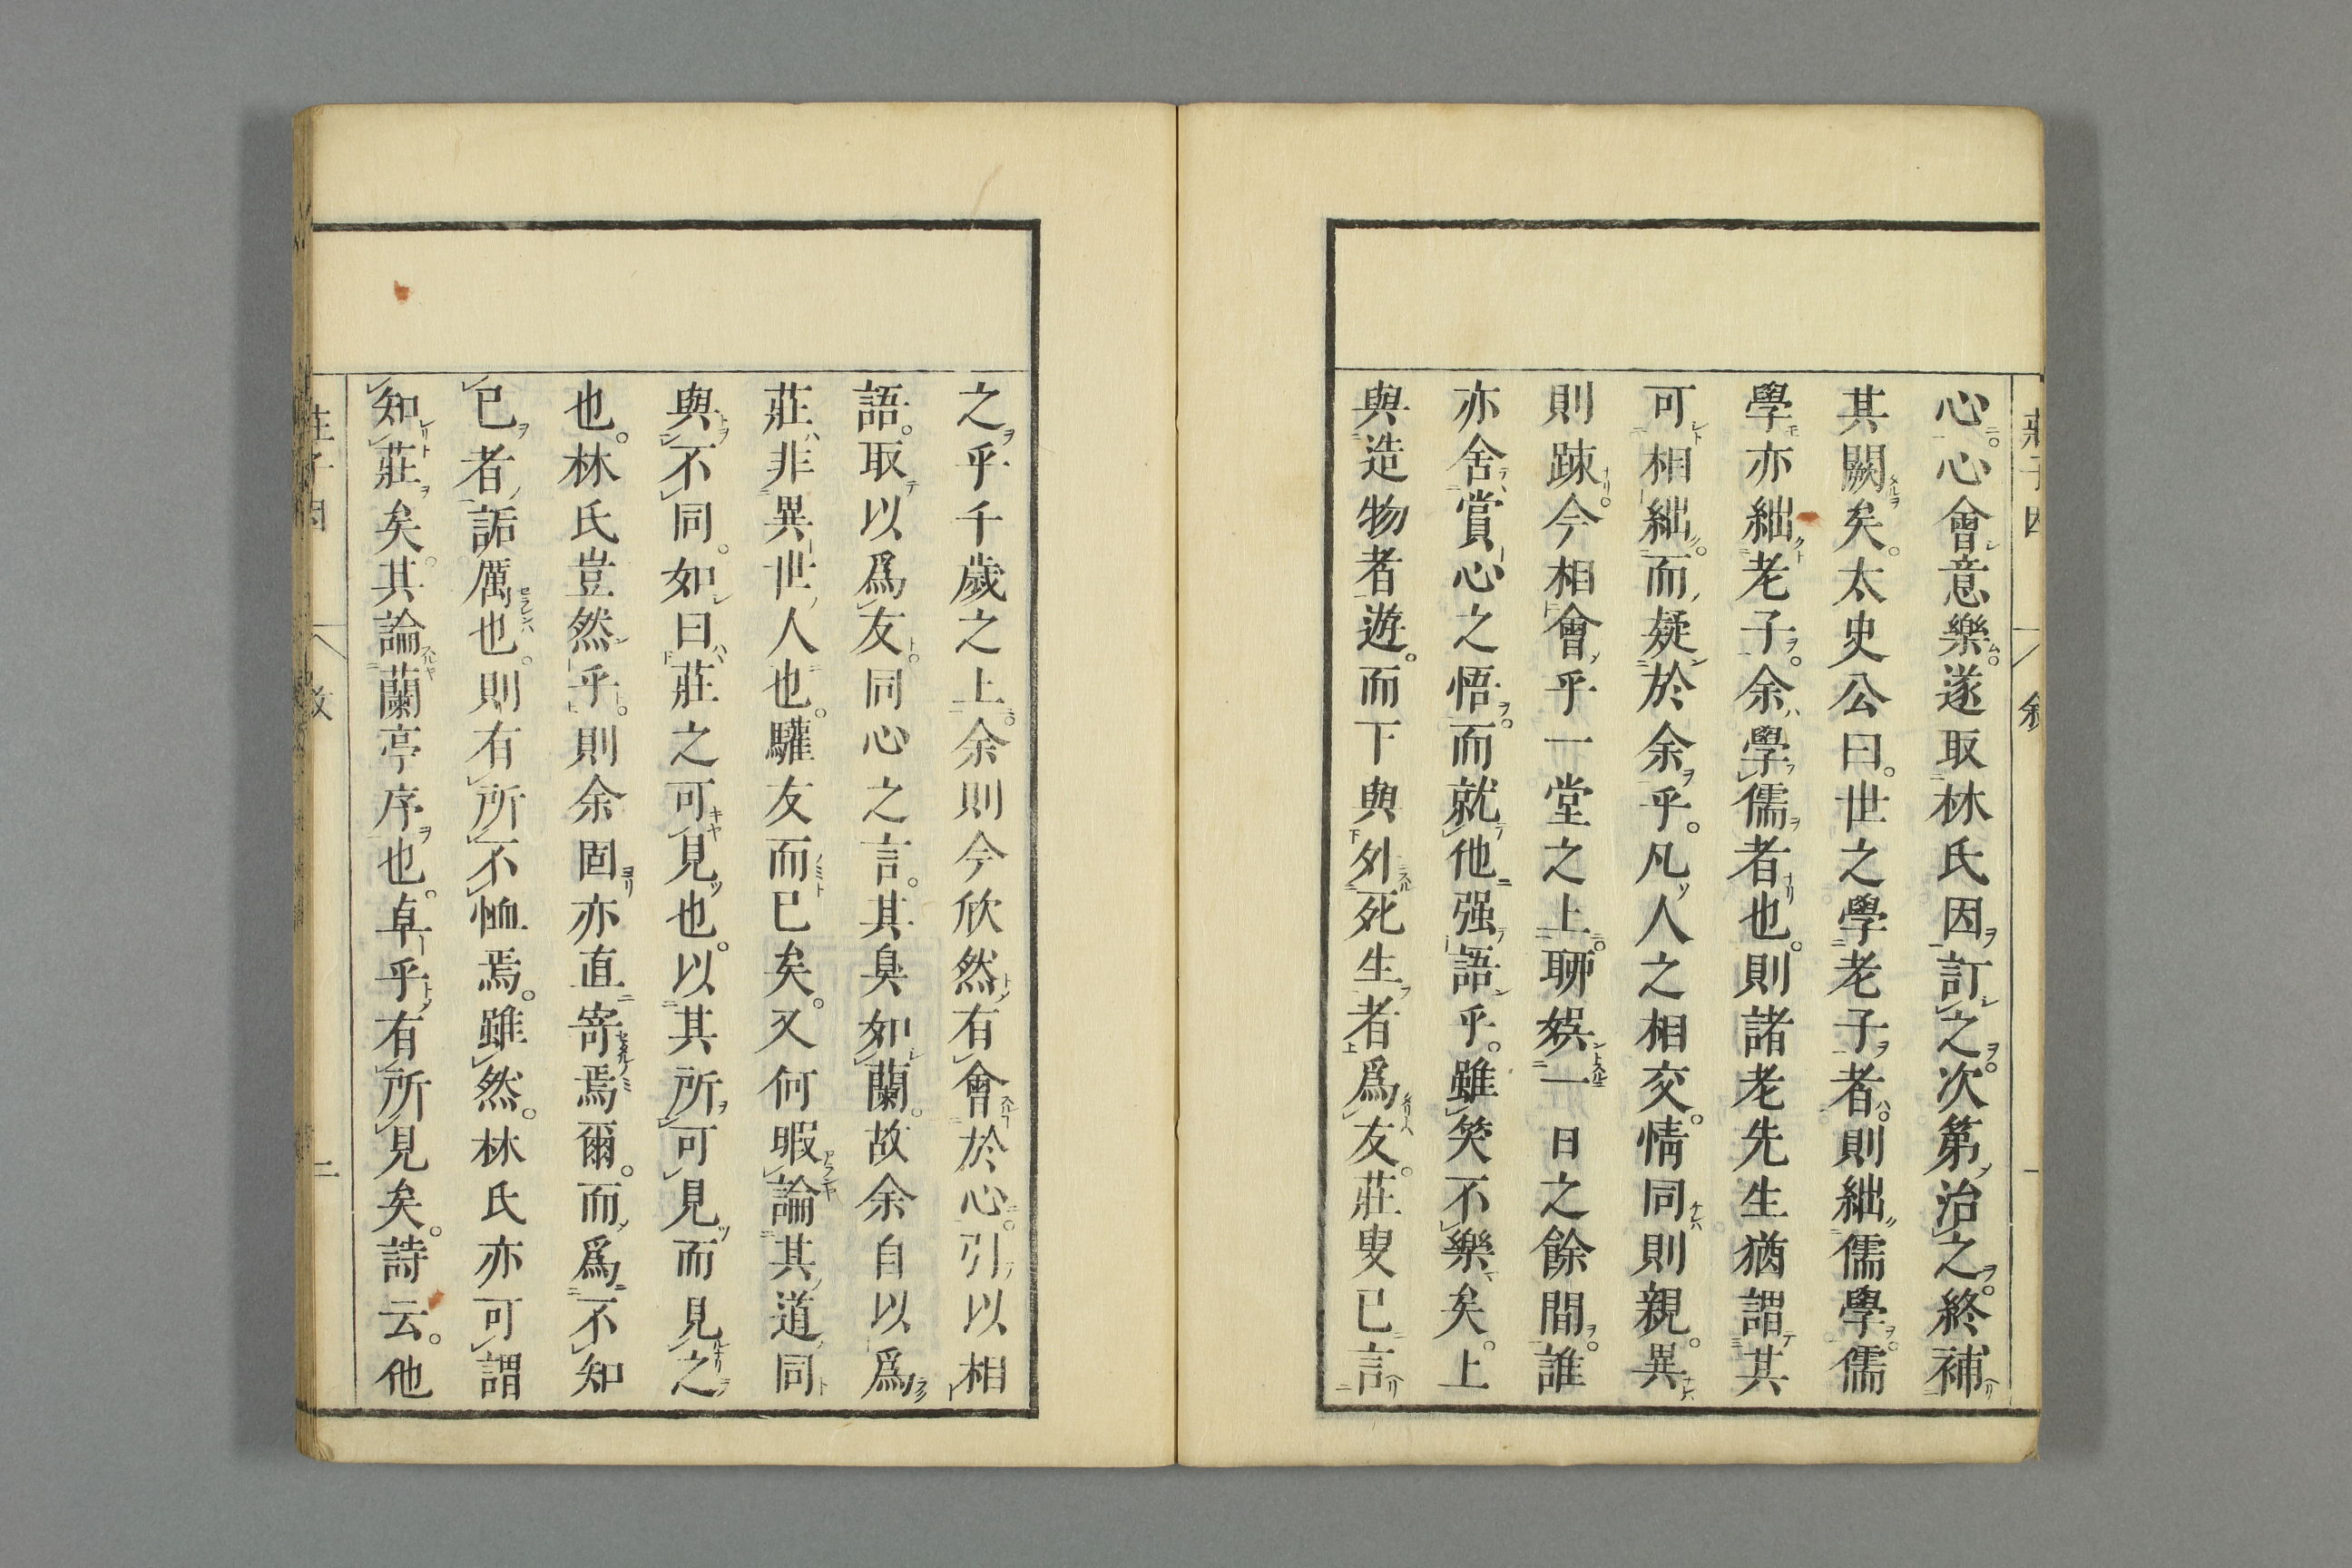 心心會意樂遂取林氏因訂之次第治之終補
其闕矣太史公曰世之學老子者則絀儒學儒
學亦絀老子余學儒者也則諸老先生猶謂其
可相絀而疑於余乎凡人之相交情同則親異
則踈今相會乎一堂之上聊娯一日之餘間誰
亦舍賞心之悟而就他强語乎雖笑不樂矣上
與造物者遊而下與外死生者爲友莊叟已言
之乎千歲之上余則今欣然有會於心引以相
語取以爲友同心之言其臭如蘭故余自以爲
莊非異世人也驩友而已矣又何暇論其道同
與不同如曰莊之可見也以其所可見而見之
也林氏豈然乎則余固亦直寄焉爾而爲不知
已者詬厲也則有所不恤焉雖然林氏亦可謂
知莊矣其論蘭亭序也卓乎有所見矣詩云他
二